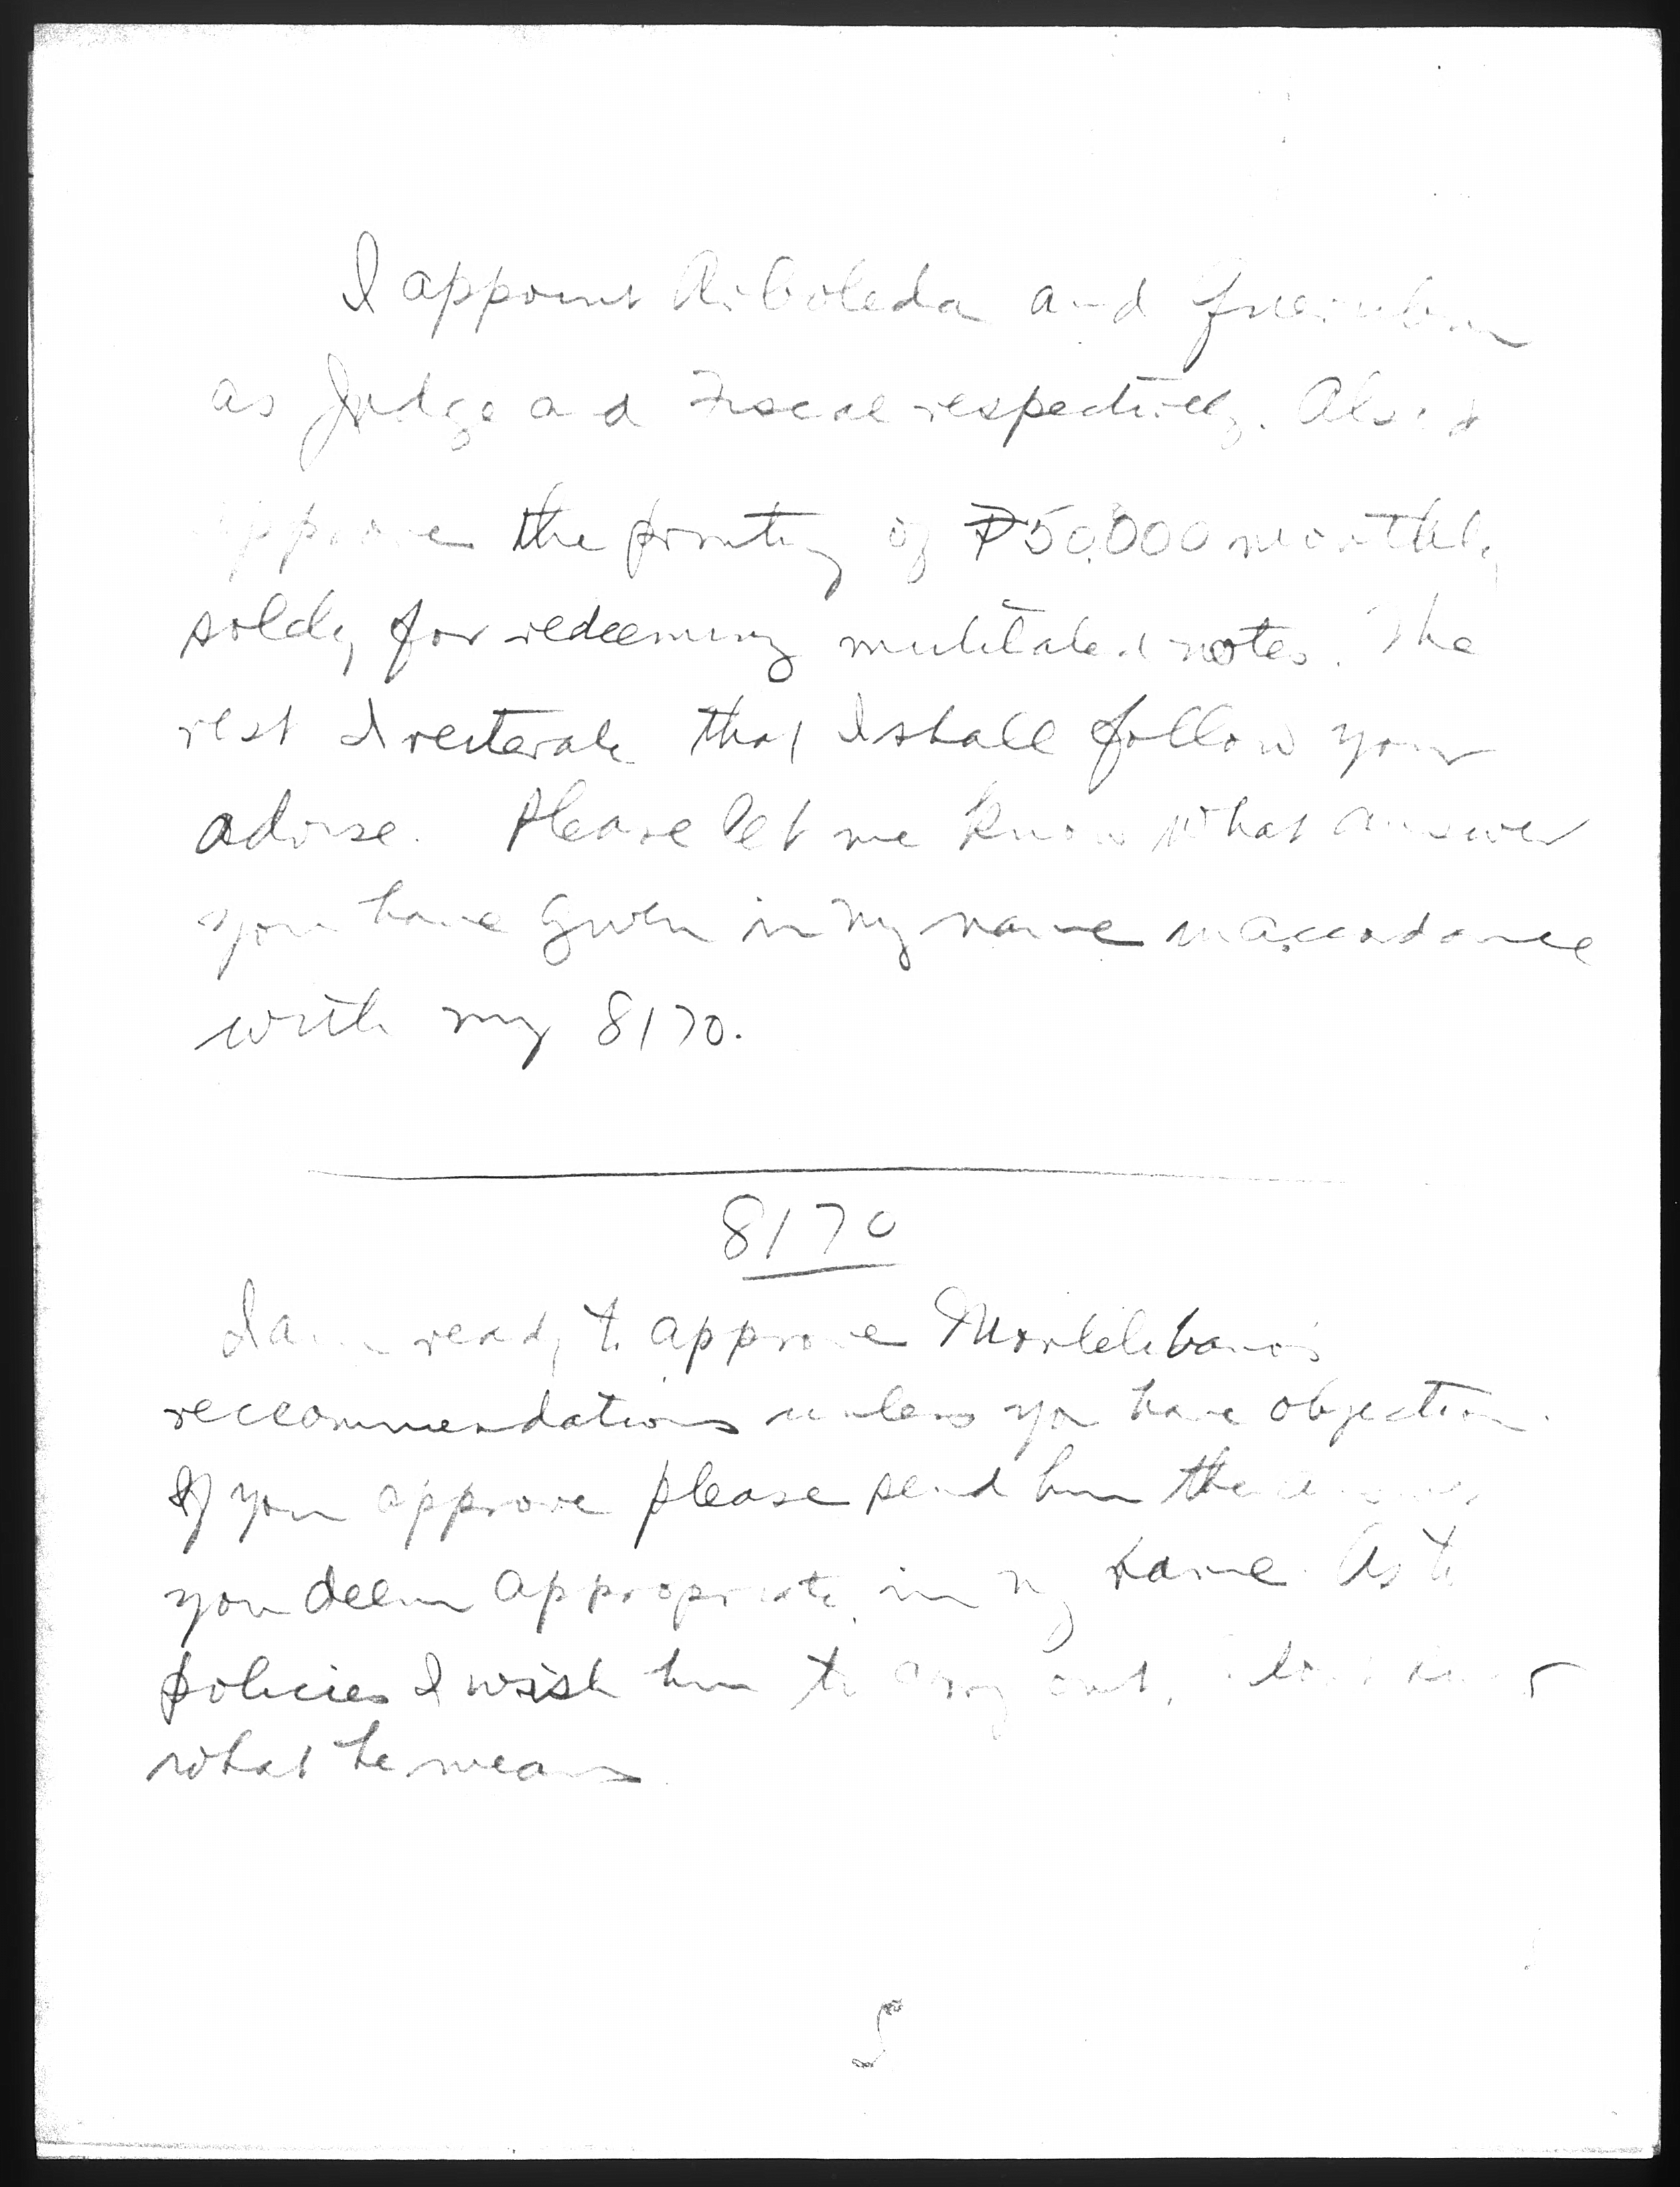 I appoint Arboleda and
as Judge and Fiscal respectively. Also I
approve the printing of ₱50,000 monthly
solely for redeeming mutilated notes. The
rest I reiterate that I shall follow your
advise. Please let me know what answer
you have given in my name in accordance
with my 8170.
8170
I am ready to approve Montelibano's
reccommendations unless you have objection.
If you approve please send him the answer
you deem appropriate in my name. As to
policies I wish him to carry out, I don't know
what he means
5